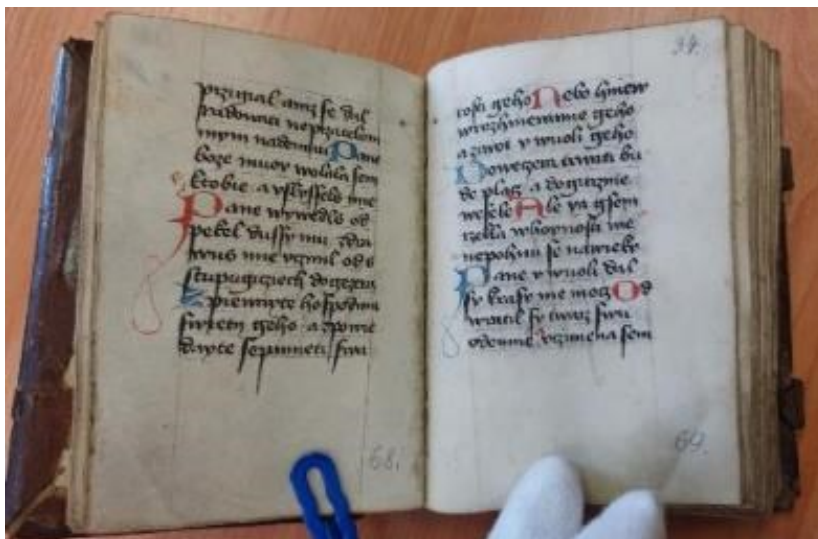 przigial aniz se dal
radowati neprzatelom
mym nademnu Pane
boze muoy wolala sem
k tobie a vslyssels mie
Pane wywedls od
pekel dussy mu
mie vczinil od
stupugiczich do gezera
Zpiewayte hospodinu
swietij geho a zpowie
dayte se pamieti swa
tosti geho Nebo hniew
w rozhniewanie geho
a ziwot v wuoli geho
Do weczera trwati bu
de placz a do gitrznie
wesele Ale ya gsem
rzekla w hoynosti me
nepohnu se nawieky
Pane v wuoli dal
sy krasy me mocz Od
wratil sy twarz swu
ode mne vczinena sem
34.
68.
69.